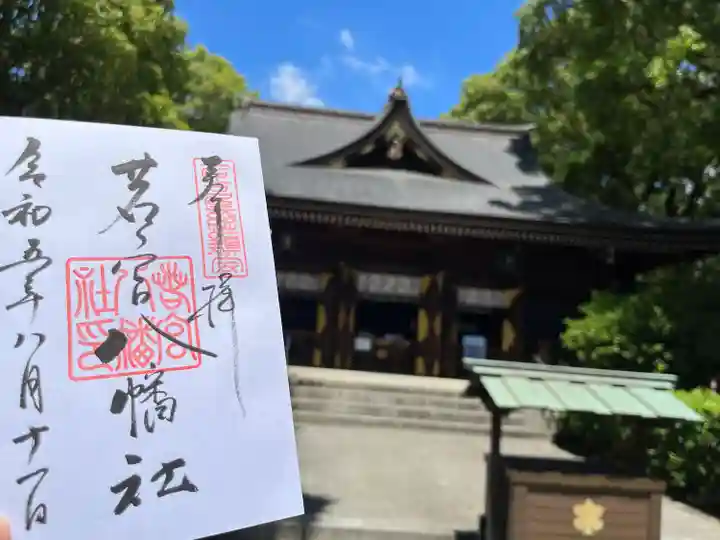 奉拝
若宮八幡社
若宮八幡社印
令和五年八月十一日